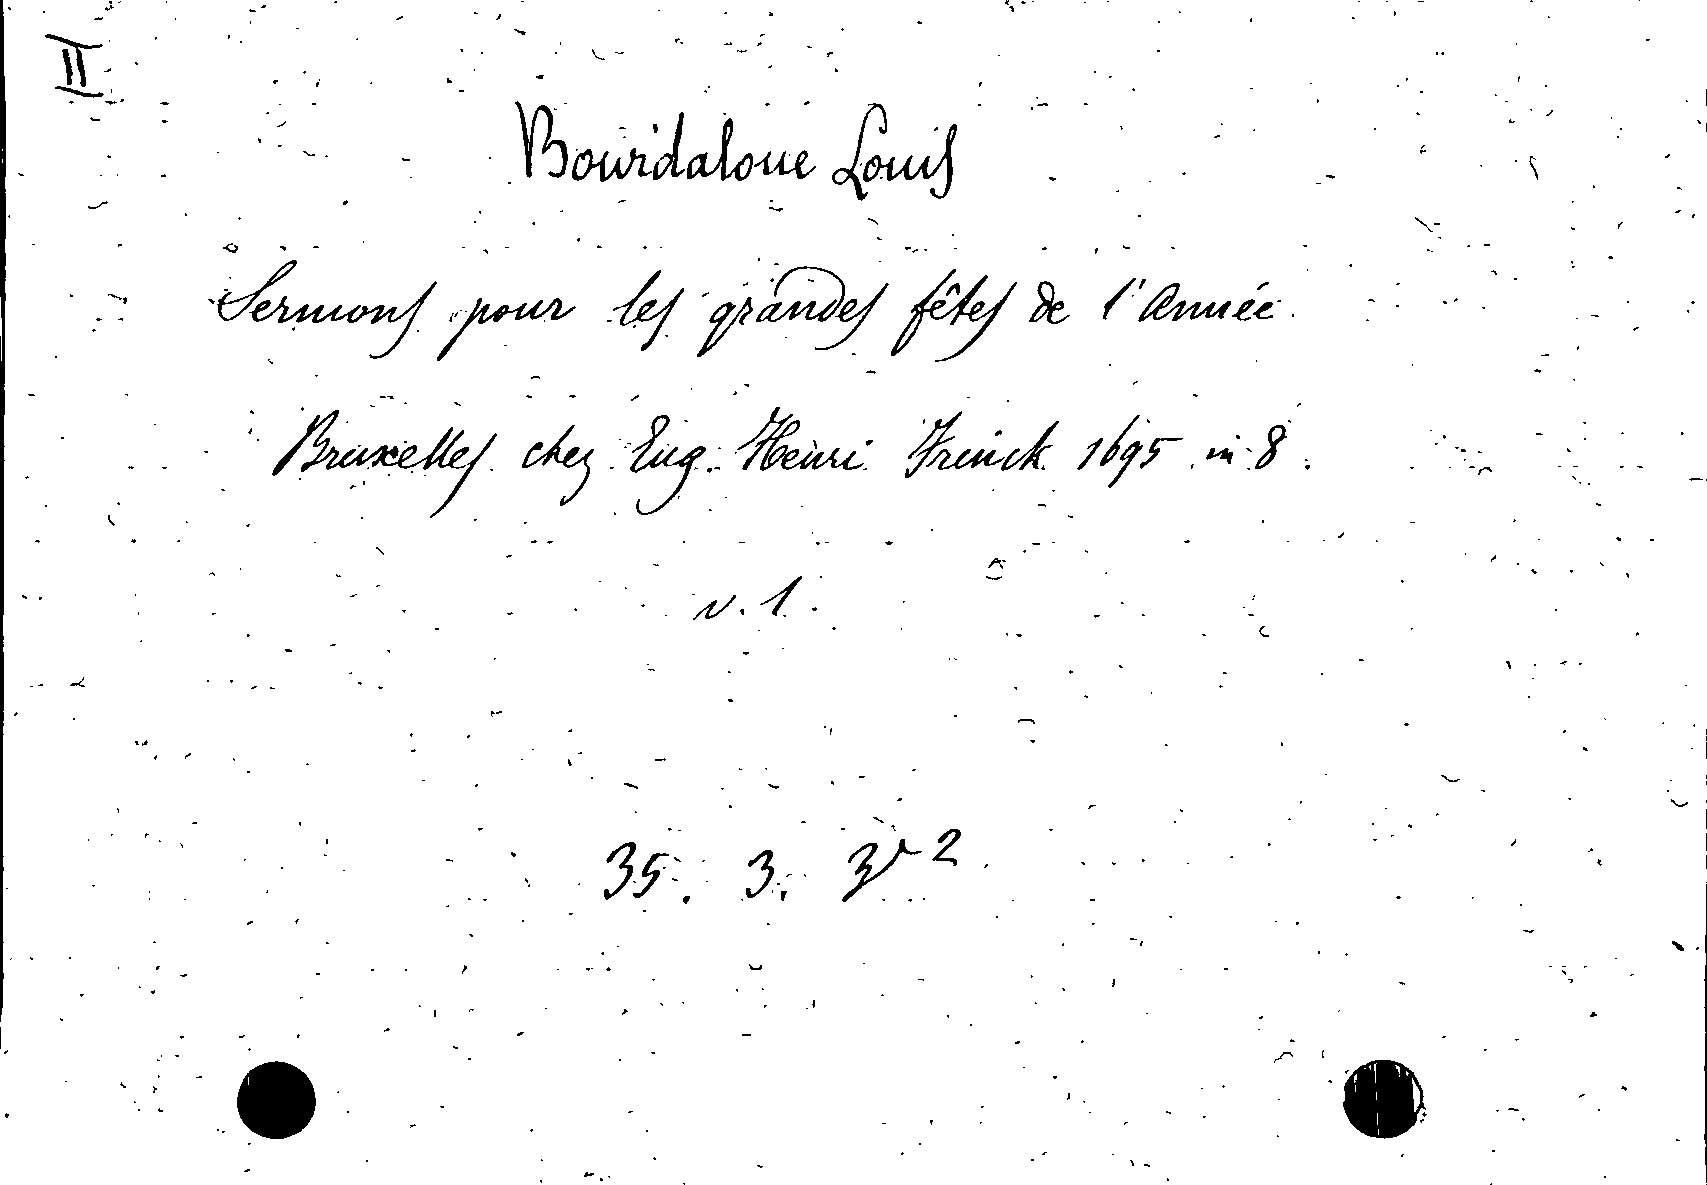 II
Bourdaloue Louis
Sermons pour les grandes fêtes de l'Année
Bruxelles chez Eug. Henri Frinck 1695 in 8.
v. 1.
35. 3. 3 2